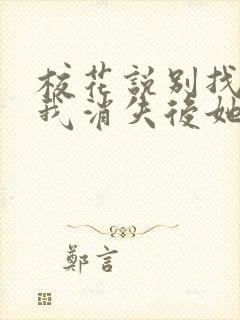 校花説别找
我消失後她
鄭言